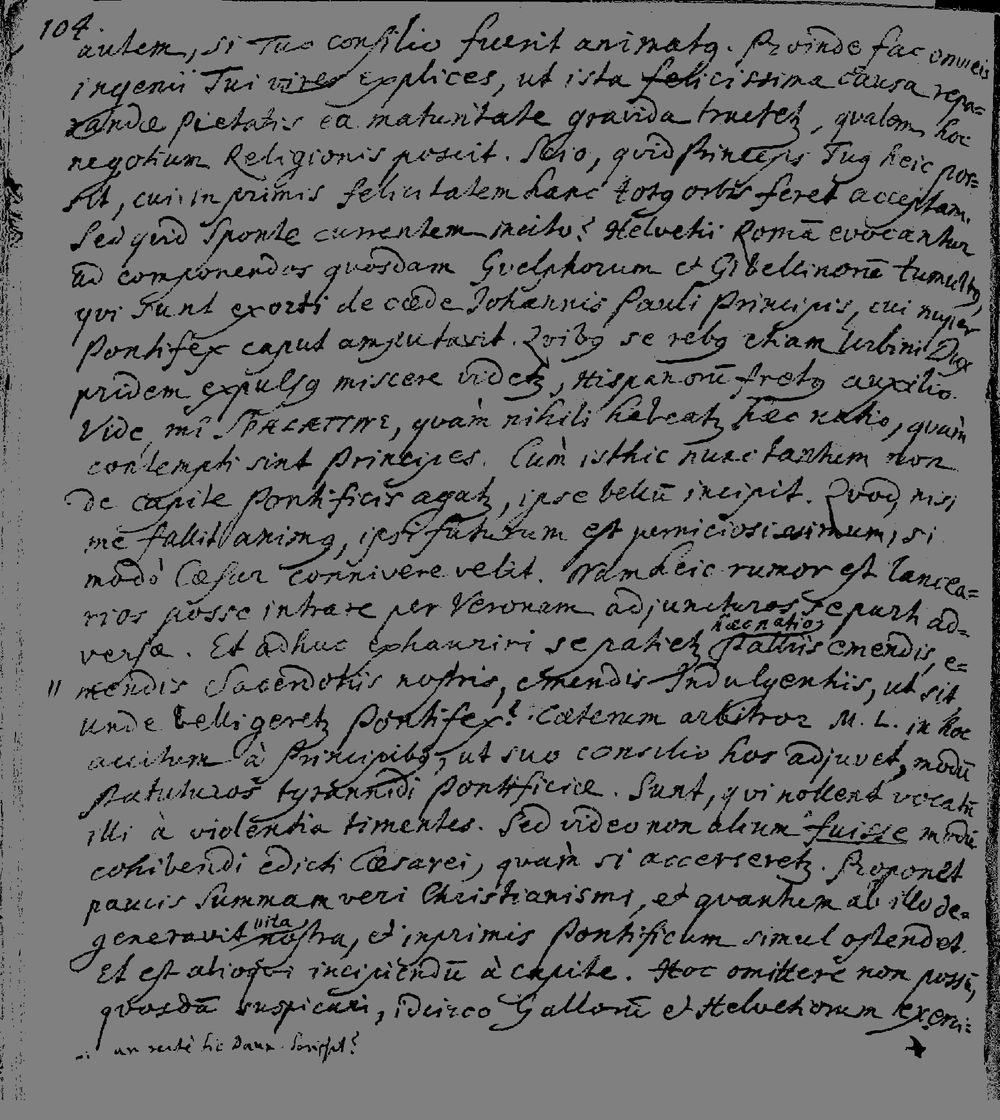 104.
autem, si Tuo consilio fuerit animatq. Proinde fac omneis
ingenii Tui vires explices, ut ista felicissima causa repa=
randæ pietatis ea maturitate gravida tructetz, qualem hoc
negotium Religionis poscit. Scio, quid Princeps Tuq heic pos=
sit, cui inprimis felicitatem hanc totq orbis feret acceptam.
Sed quid sponte currentem incito? Helvetii Romā evocantur
ad componendos quosdam Gvelphorum et Gibellinorū tumultq,
qvi sunt exorti de cæde Johannis Pauli Principis, cui nuper
Pontifex caput amputavit. Qvibq se rebq etiam Urbini Dux
pridem expulsq miscere videtz, Hispanorū fretq auxilio.
Vide, mi SPALATINE, quàm nihili habeatz hæc natio, quàm
contempti sint Principes. Cùm isthic nunc tantum non
de capite Pontificis agatz, ipse bellū incipit. Qvod, nisi
me fallit animq, ipsi futurum est perniciosissimum, si
modò Cæsar connivere velit. Nam heic rumor est lancea=
rios posse intrare per Veronam adjuncturos se parti ad=
versæ. Et adhuc exhauriri se patietz hæc natio
Palliis emendis, e=
" mendis Sacerdotiis nostris, emendis Indulgentiis, ut sit,
unde belligeretz Pontifex? Cæterum arbitror M. L. in hoc
accitum à Principibq, ut suo consilio hos adjuvet, modū
statuturos tyrannidi Pontificiæ. Sunt, qvi nollent vocatū
illi à violentia timentes. Sed video non alium fuisse modū
cohibendi edicti Cæsarei, quàm si accerseretz. Proponet
paucis Summam veri Christianismi, et quantum ab illo de=
generavit vita nostra, et inprimis Pontificum simul ostendet.
Et est alioqvi incipiendū à capite. Hoc omittere non possū,
qvosdā suspicari, idcirco Gallorū et Helvetiorum exerci=
an recte sic Daum. Script?